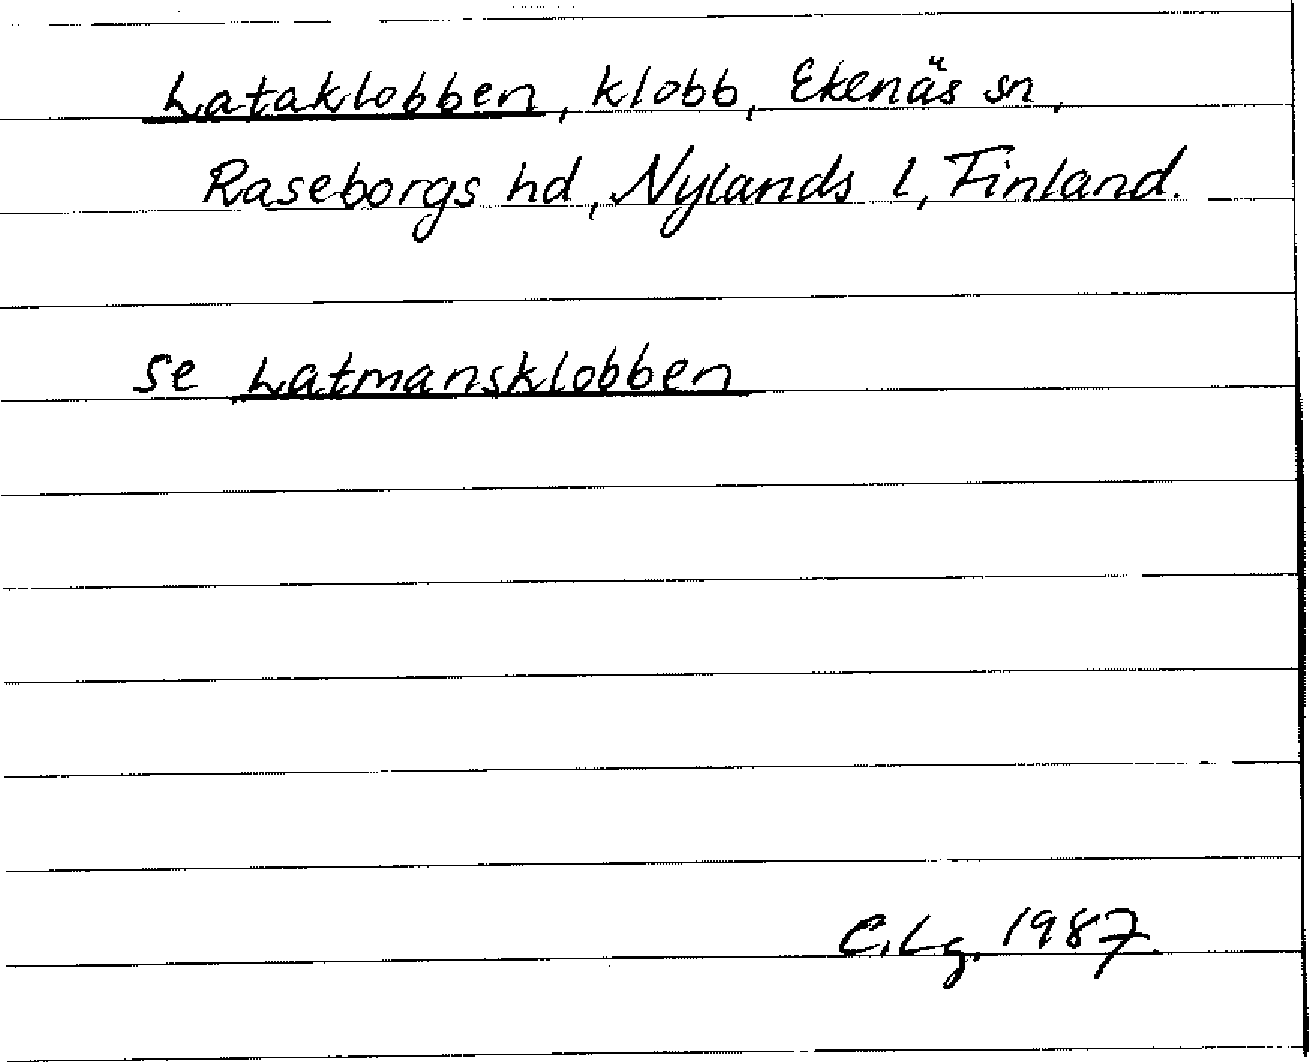 Lataklobben, klobb, Ekenäs sn,
Raseborgs hd, Nylands l, Finland.
se Latmansklobben
C.Lg. 1987.